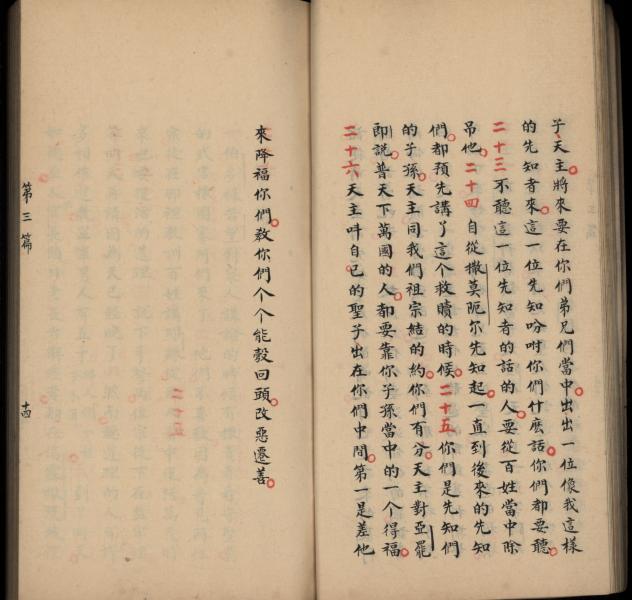 子天主將來要在你們弟兄們當中出出一位像我這樣
的先知者來這一位先知吩咐你們什麼話你們都要聽
二十三不聽這一位先知者的話的人要從百姓當中除
吊他二十四自從撒莫阨尔先知起一直到後來的先知
們都預先講了這个救贖的時候二十五你們是先知們
的子孫天主同我們祖宗結的約你們有分天主對亞羅
即說普天下萬國的人都要靠你子孫當中的一个得福
二十六天主呌自己的聖子出在你們中間第一是差他
來降福你們教你們个个能彀回頭改惡遷善
第三篇
十四